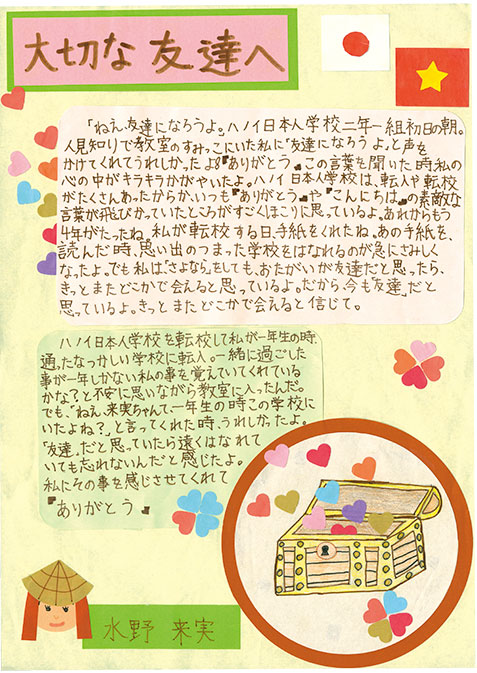 大切な友達へ
「ねえ、友達になろうよ。ハノイ日本人学校二年一組初日の朝。
人見知りで教室のすみっこにいた私に「友達になろうよ。」と声を
かけてくれてうれしかったよ。『ありがとう。』この言葉を聞いた時、私の
心の中がキラキラかがやいたよ。ハノイ日本人学校は、転入や転校
がたくさんあったからか、いつも『ありがとう。』や『こんにちは。』の素敵な
言葉が飛びかっていたところがすごくほこりに思っているよ。あれからもう
4年がたったね。私が転校する日、手紙をくれたね。あの手紙を、
読んだ時、思い出のつまった学校をはなれるのが急にさみしく
なったよ。でも私は「さよなら」をしても、おたがいが友達だと思ったら、
きっとまたどこかで会えると思っているよ。だから、今も「友達」だと
思っているよ。きっとまたどこかで会えると信じて。
ハノイ日本人学校を転校して私が一年生の時、
通ったなつかしい学校に転入。一緒に過ごした
事が一年しかない私の事を覚えていてくれている
かな?と不安に思いながら教室に入ったんだ。
でも、「ねえ、来実ちゃんて一年生の時この学校に
いたよね?」と言ってくれた時、うれしかったよ。
「友達」だと思っていたら遠くはなれて
いても忘れないんだと感じたよ。
私にその事を感じさせてくれて
『ありがとう。』
水野 来実